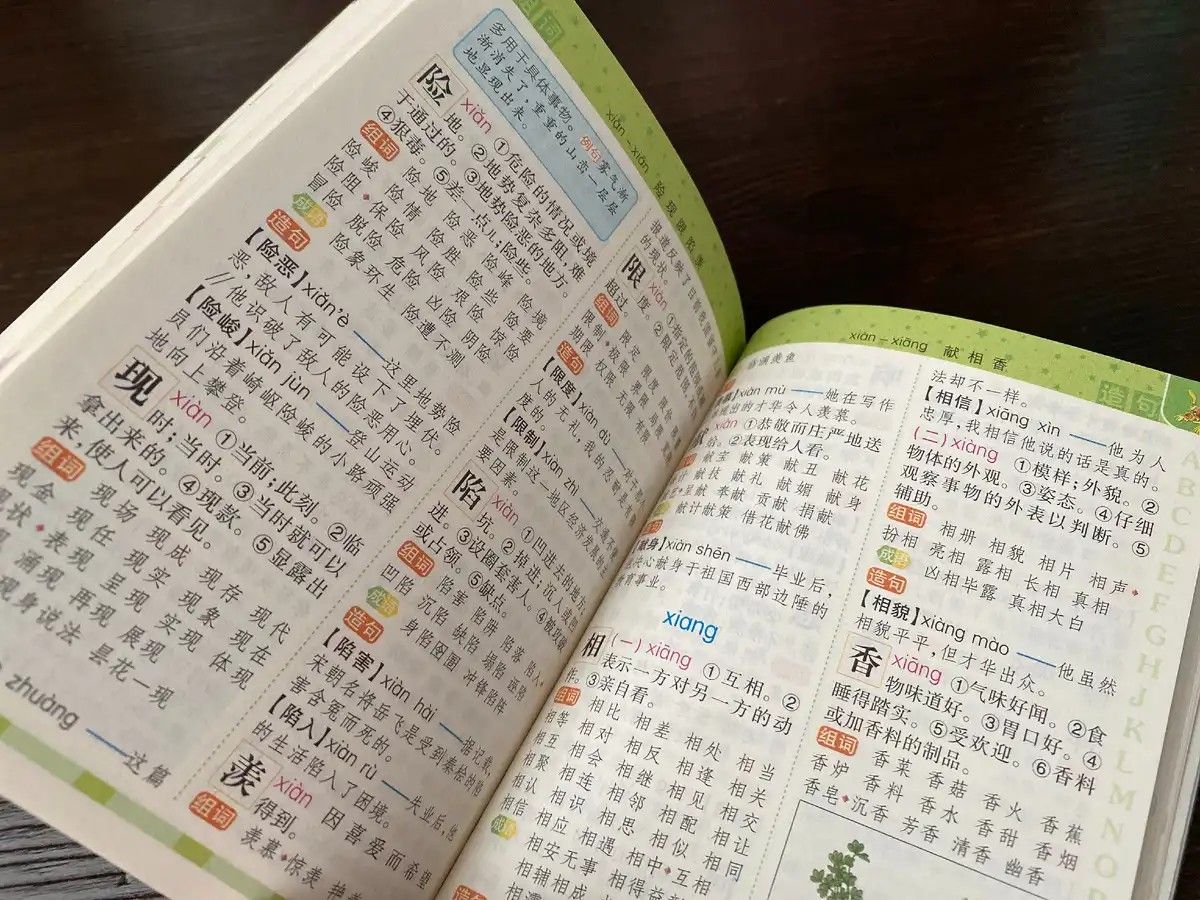 组词
多用于具体事物。例句 雾气渐
渐消失了，重重的山峦一层层
地显现出来。
险 地。
xiǎn ①危险的情况或境
地。②地势复杂多阻，难
于通过的。③地势险恶的地方。
④狠毒。⑤差一点儿；险些。
组词 险峻 险地 险峰 险境
险阻 险情 险恶 险些 险要
冒险 保险 险胜 艰险 惊险
脱险 危险 风险 凶险 阴险
成语 险家环生 险遭不测
造句
【险恶】xiǎn'è ——这里地势险
恶，敌人有可能设下了埋伏。
//他识破了敌人的险恶用心。
【险峻】xiǎn jùn ——登山运动
员们沿着崎岖险峻的小路顽强
地向上攀登。
现 xiàn ①当前；此刻。②临
时；当时。③当时就可以
拿出来的。④现款。⑤显露出
来，使人可以看见。
组词 现场 现成 现存 现代
现金 现任 现实 现象 现在
现状 表现 呈现 实现 体现
涌现 再现 展现
现身说法 昙花一现
zhuàng ——这篇
xiǎn－xiàn 险 现 限 陷 羡
的现状。
限 xiàn ①指定的范围；
限度。②限定范围；
超过。
组词 限定 限度 限制
期限 权限 无限 有限
造句
【限度】xiàn dù
度的。
【限制】xiàn zhì ——交通不便
是限制这一地区经济发展的
要因素。
陷 xiàn ①凹进去的地方；
坑。②掉进；沉入或凹
进。③设圈套害人。④被攻破
或占领。⑤缺点。
组词 陷害 陷阱 陷落 陷入
凹陷 沉陷 缺陷 塌陷 诬陷
成语 身陷囹圄 冲锋陷阵
造句
【陷害】xiàn hài ——据记载，
宋朝名将岳飞是受到秦桧的陷
害含冤而死的。
【陷入】xiàn rù ——失业后，他
的生活陷入了困境。
羡 xiàn 因喜爱而希望
得到。
组词 羡慕 惊羡 艳羡
xiàn－xiāng 献 相 香
造句
xiàn mù ——她在写作
现出的才华令人羡慕。
xiàn ①恭敬而庄严地送
给。②表现给人看。
献宝 献策 献丑 献花
献技 献礼 献媚 献身
奉献 贡献 捐献
献计献策 借花献佛
xiàn shēn ——毕业后，
决心献身于祖国西部边陲的
教育事业。
xiang
相 (一) xiāng ①互相。②
表示一方对另一方的动
作。③亲自看。
组词 相比 相差 相处 相当
相等 相对 相反 相逢 相关
相互 相会 相继 相见 相交
相聚 相连 相邻 相配 相让
相认 相识 相思 相似 相同
相信 相应 相遇 相中 互相
成语 相安无事 相得益彰
相辅相成
造句
法却不一样。
【相信】xiāng xìn ——他为人
忠厚，我相信他说的话是真的。
(二) xiàng ①模样；外貌。②
物体的外观。③姿态。④仔细
观察事物的外表以判断。⑤
辅助。
组词 相册 相貌 相片 相声
扮相 亮相 露相 长相 真相
成语 凶相毕露 真相大白
造句
【相貌】xiàng mào ——他虽然
相貌平平，但才华出众。
香 xiāng ①气味好闻。②食
物味道好。③胃口好。④
睡得踏实。⑤受欢迎。⑥香料
或加香料的制品。
组词 香菜 香菇 香火 香蕉
香炉 香料 香水 香甜 香烟
香皂 沉香 芳香 清香 幽香
A
B
C
D
E
F
G
H
J
K
L
M
N
O
P